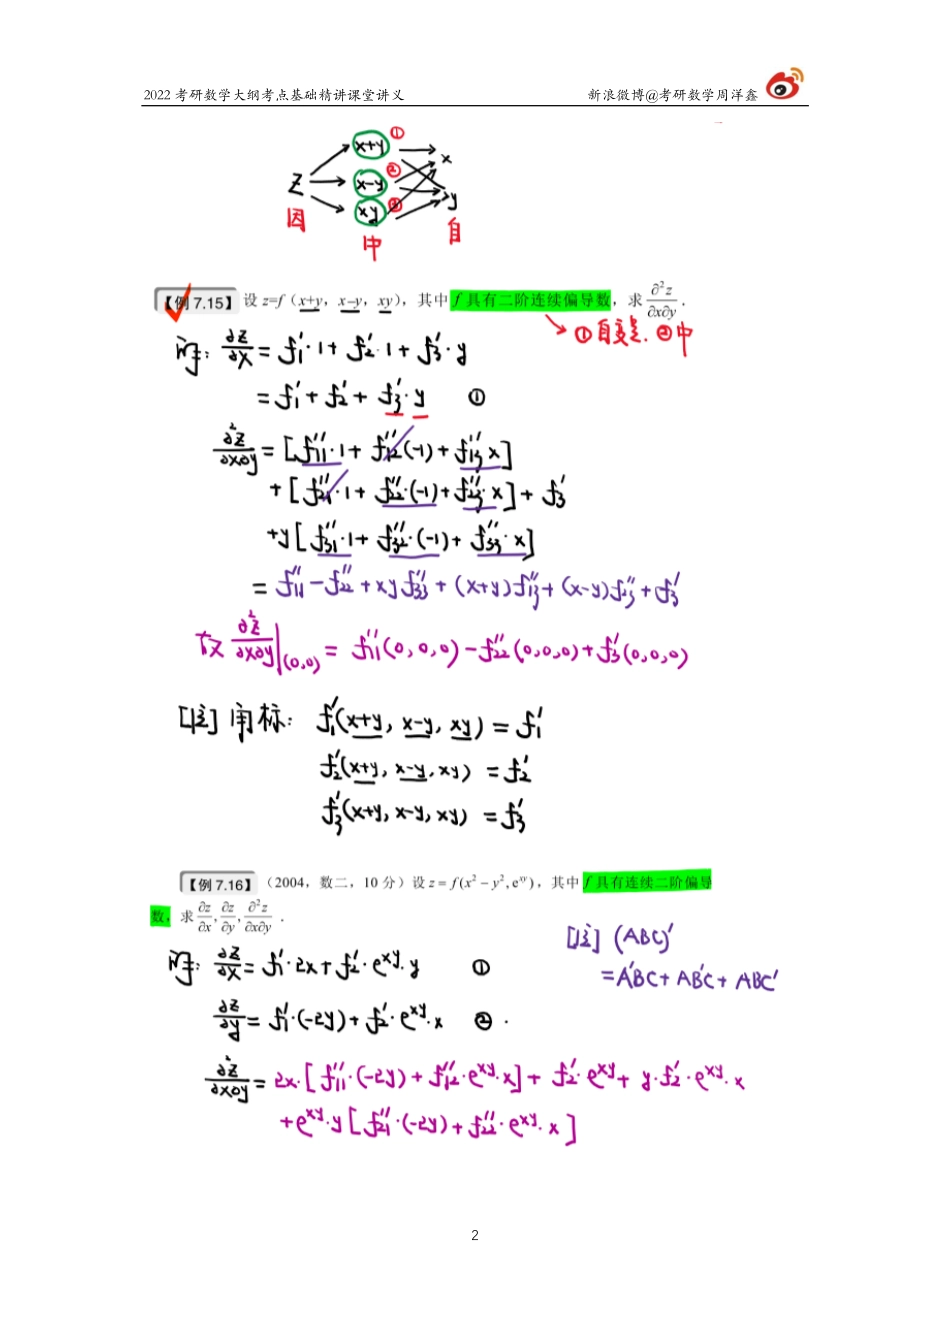 2022 考研数学大纲考点基础精讲课堂讲义 新浪微博@考研数学周洋鑫
x+y ①
x
z x-y ②
y
xy ③
因 中 自
【例 7.15】 设 z=f（x+y，x−y，xy），其中 f 具有二阶连续偏导数，求 ∂²z/∂x∂y .
→ ①自变量. ②中
解: ∂z/∂x = f₁′·1 + f₂′·1 + f₃′·y
= f₁′ + f₂′ + f₃′·y ①
∂²z/∂x∂y = [f₁₁″·1 + f₁₂″(-1) + f₁₃″x]
+ [f₂₁″·1 + f₂₂″·(-1) + f₂₃″·x] + f₃′
+y[f₃₁″·1 + f₃₂″·(-1) + f₃₃″·x]
= f₁₁″ - f₂₂″ + xyf₃₃″ + (x+y)f₁₃″ + (x-y)f₂₃″ + f₃′
故 ∂²z/∂x∂y|(0,0) = f₁₁″(0,0,0) - f₂₂″(0,0,0) + f₃′(0,0,0)
[注] 角标: f₁′(x+y, x-y, xy) = f₁′
f₂′(x+y, x-y, xy) = f₂′
f₃′(x+y, x-y, xy) = f₃′
【例 7.16】（2004，数二，10 分）设 z = f(x² − y², eˣʸ)，其中 f 具有连续二阶偏导
数，求 ∂z/∂x, ∂z/∂y, ∂²z/∂x∂y .
[注] (ABC)′
=A′BC+AB′C+ABC′
解: ∂z/∂x = f₁′·2x + f₂′·eˣʸ·y ①
∂z/∂y = f₁′·(-2y) + f₂′·eˣʸ·x ② .
∂²z/∂x∂y = 2x·[f₁₁″·(-2y) + f₁₂″·eˣʸ·x] + f₂′·eˣʸ + y·f₂′·eˣʸ·x
+eˣʸ·y[f₂₁″·(-2y) + f₂₂″·eˣʸ·x]
2